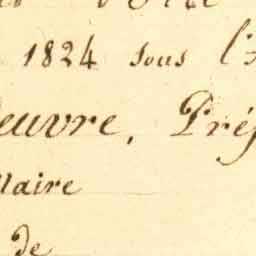 1824 sous l'
euvre, Préf
Maire
de